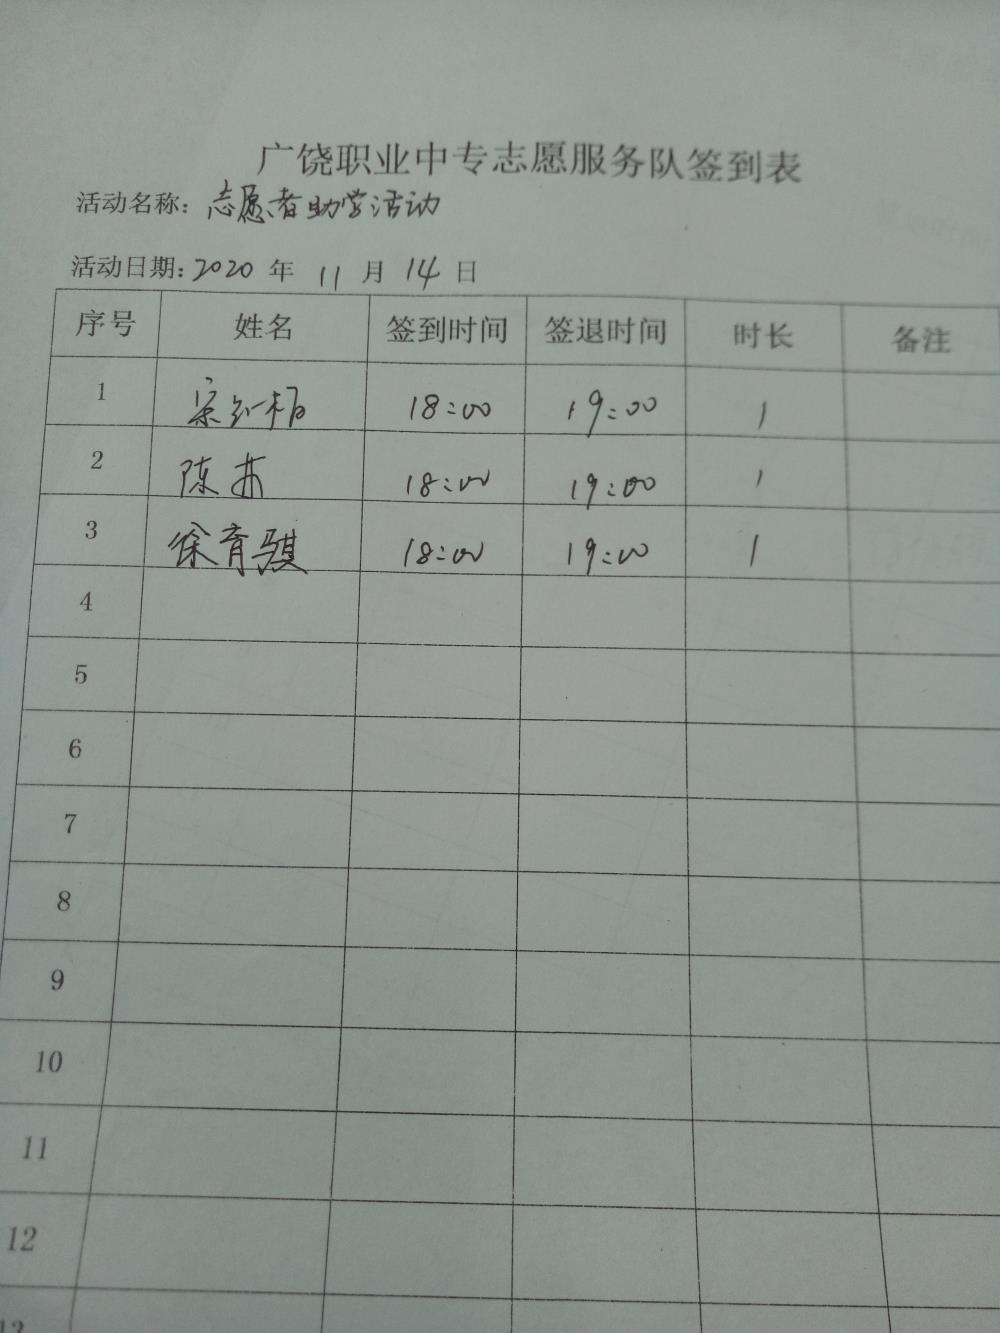 广饶职业中专志愿服务队签到表
活动名称: 志愿者助学活动
活动日期: 2020 年 11 月 14 日
序号 姓名 签到时间 签退时间 时长 备注
1 18:00 19:00 1
2 陈 18:00 19:00 1
3 徐育骐 18:00 19:00 1
4
5
6
7
8
9
10
11
12
13